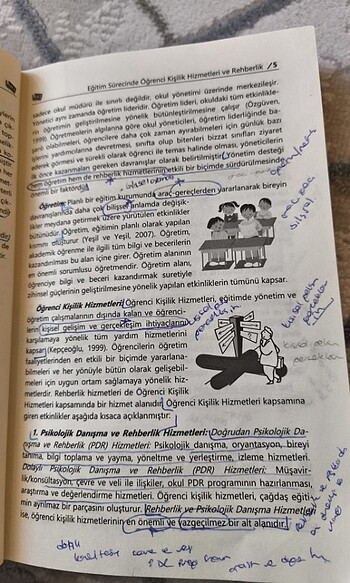 Eğitim Sürecinde Öğrenci Kişilik Hizmetleri ve Rehberlik / 5
sadece okul müdürü ile sınırlı değildir, okul yönetimi üzerinde merkezileşir.
Yönetici aynı zamanda öğretim lideridir. Öğretim lideri, okuldaki tüm etkinlikle-
rin öğretimin geliştirilmesine yönelik bütünleştirilmesine çalışır (Özgüven,
1999). Öğretmenlerin algılarına göre okul yöneticileri, öğretim liderliğinde ba-
şarılı olabilmeleri, öğrencilere daha çok zaman ayırabilmeleri için günlük bazı
işlerini yardımcılarına devretmesi, sınıfta olup bitenleri bizzat sınıfları ziyaret
ederek görmesi ve sürekli olarak öğrenci ile temas halinde olması, yöneticilerin
ilk önce kazanmaları gereken davranışlar olarak belirtilmiştir. Yönetim desteği
hem öğretim hem de rehberlik hizmetlerinin etkili bir biçimde sürdürülmesinde
önemli bir faktördür.
Öğretim: Planlı bir eğitim kurumunda araç-gereçlerden yararlanarak bireyin
davranışlarında daha çok bilişsel anlamda değişik-
likler meydana getirmek üzere yürütülen etkinlikler
bütünüdür. Öğretim, eğitimin planlı olarak yapılan
kısmını oluşturur (Yeşil ve Yeşil, 2007). Öğretim,
akademik öğrenme ile ilgili tüm bilgi ve becerilerin
kazandırılması bu alan içine girer. Öğretim alanının
en önemli sorumlusu öğretmendir. Öğretim alanı,
öğrenciye bilgi ve beceri kazandırmak suretiyle
zihinsel güçlerinin geliştirilmesine yönelik yapılan etkinliklerin tümünü kapsar.
Öğrenci Kişilik Hizmetleri: Öğrenci Kişilik Hizmetleri, eğitimde yönetim ve
öğretim çalışmalarının dışında kalan ve öğrenci-
lerin kişisel gelişim ve gerçekleşim ihtiyaçlarını
karşılamaya yönelik tüm yardım hizmetlerini
kapsar (Kepçeoğlu, 1999). Öğrencilerin öğretim
faaliyetlerinden en etkili bir biçimde yararlana-
bilmeleri ve her yönüyle bütün olarak gelişebil-
meleri için uygun ortam sağlamaya yönelik hiz-
metlerdir. Rehberlik hizmetleri de Öğrenci Kişilik
Hizmetleri kapsamında bir hizmet alanıdır. Öğrenci Kişilik Hizmetleri kapsamına
giren etkinlikler aşağıda kısaca açıklanmıştır:
1. Psikolojik Danışma ve Rehberlik Hizmetleri: Doğrudan Psikolojik Da-
nışma ve Rehberlik (PDR) Hizmetleri: Psikolojik danışma, oryantasyon, bireyi
tanıma, bilgi toplama ve yayma, yöneltme ve yerleştirme, izleme hizmetleri.
Dolaylı Psikolojik Danışma ve Rehberlik (PDR) Hizmetleri: Müşavir-
lik/konsültasyon, çevre ve veli ile ilişkiler, okul PDR programının hazırlanması,
araştırma ve değerlendirme hizmetleri. Öğrenci kişilik hizmetleri, çağdaş eğiti-
min ayrılmaz bir parçasını oluşturur. Rehberlik ve Psikolojik Danışma Hizmetleri
ise, öğrenci kişilik hizmetlerinin en önemli ve vazgeçilmez bir alt alanıdır.